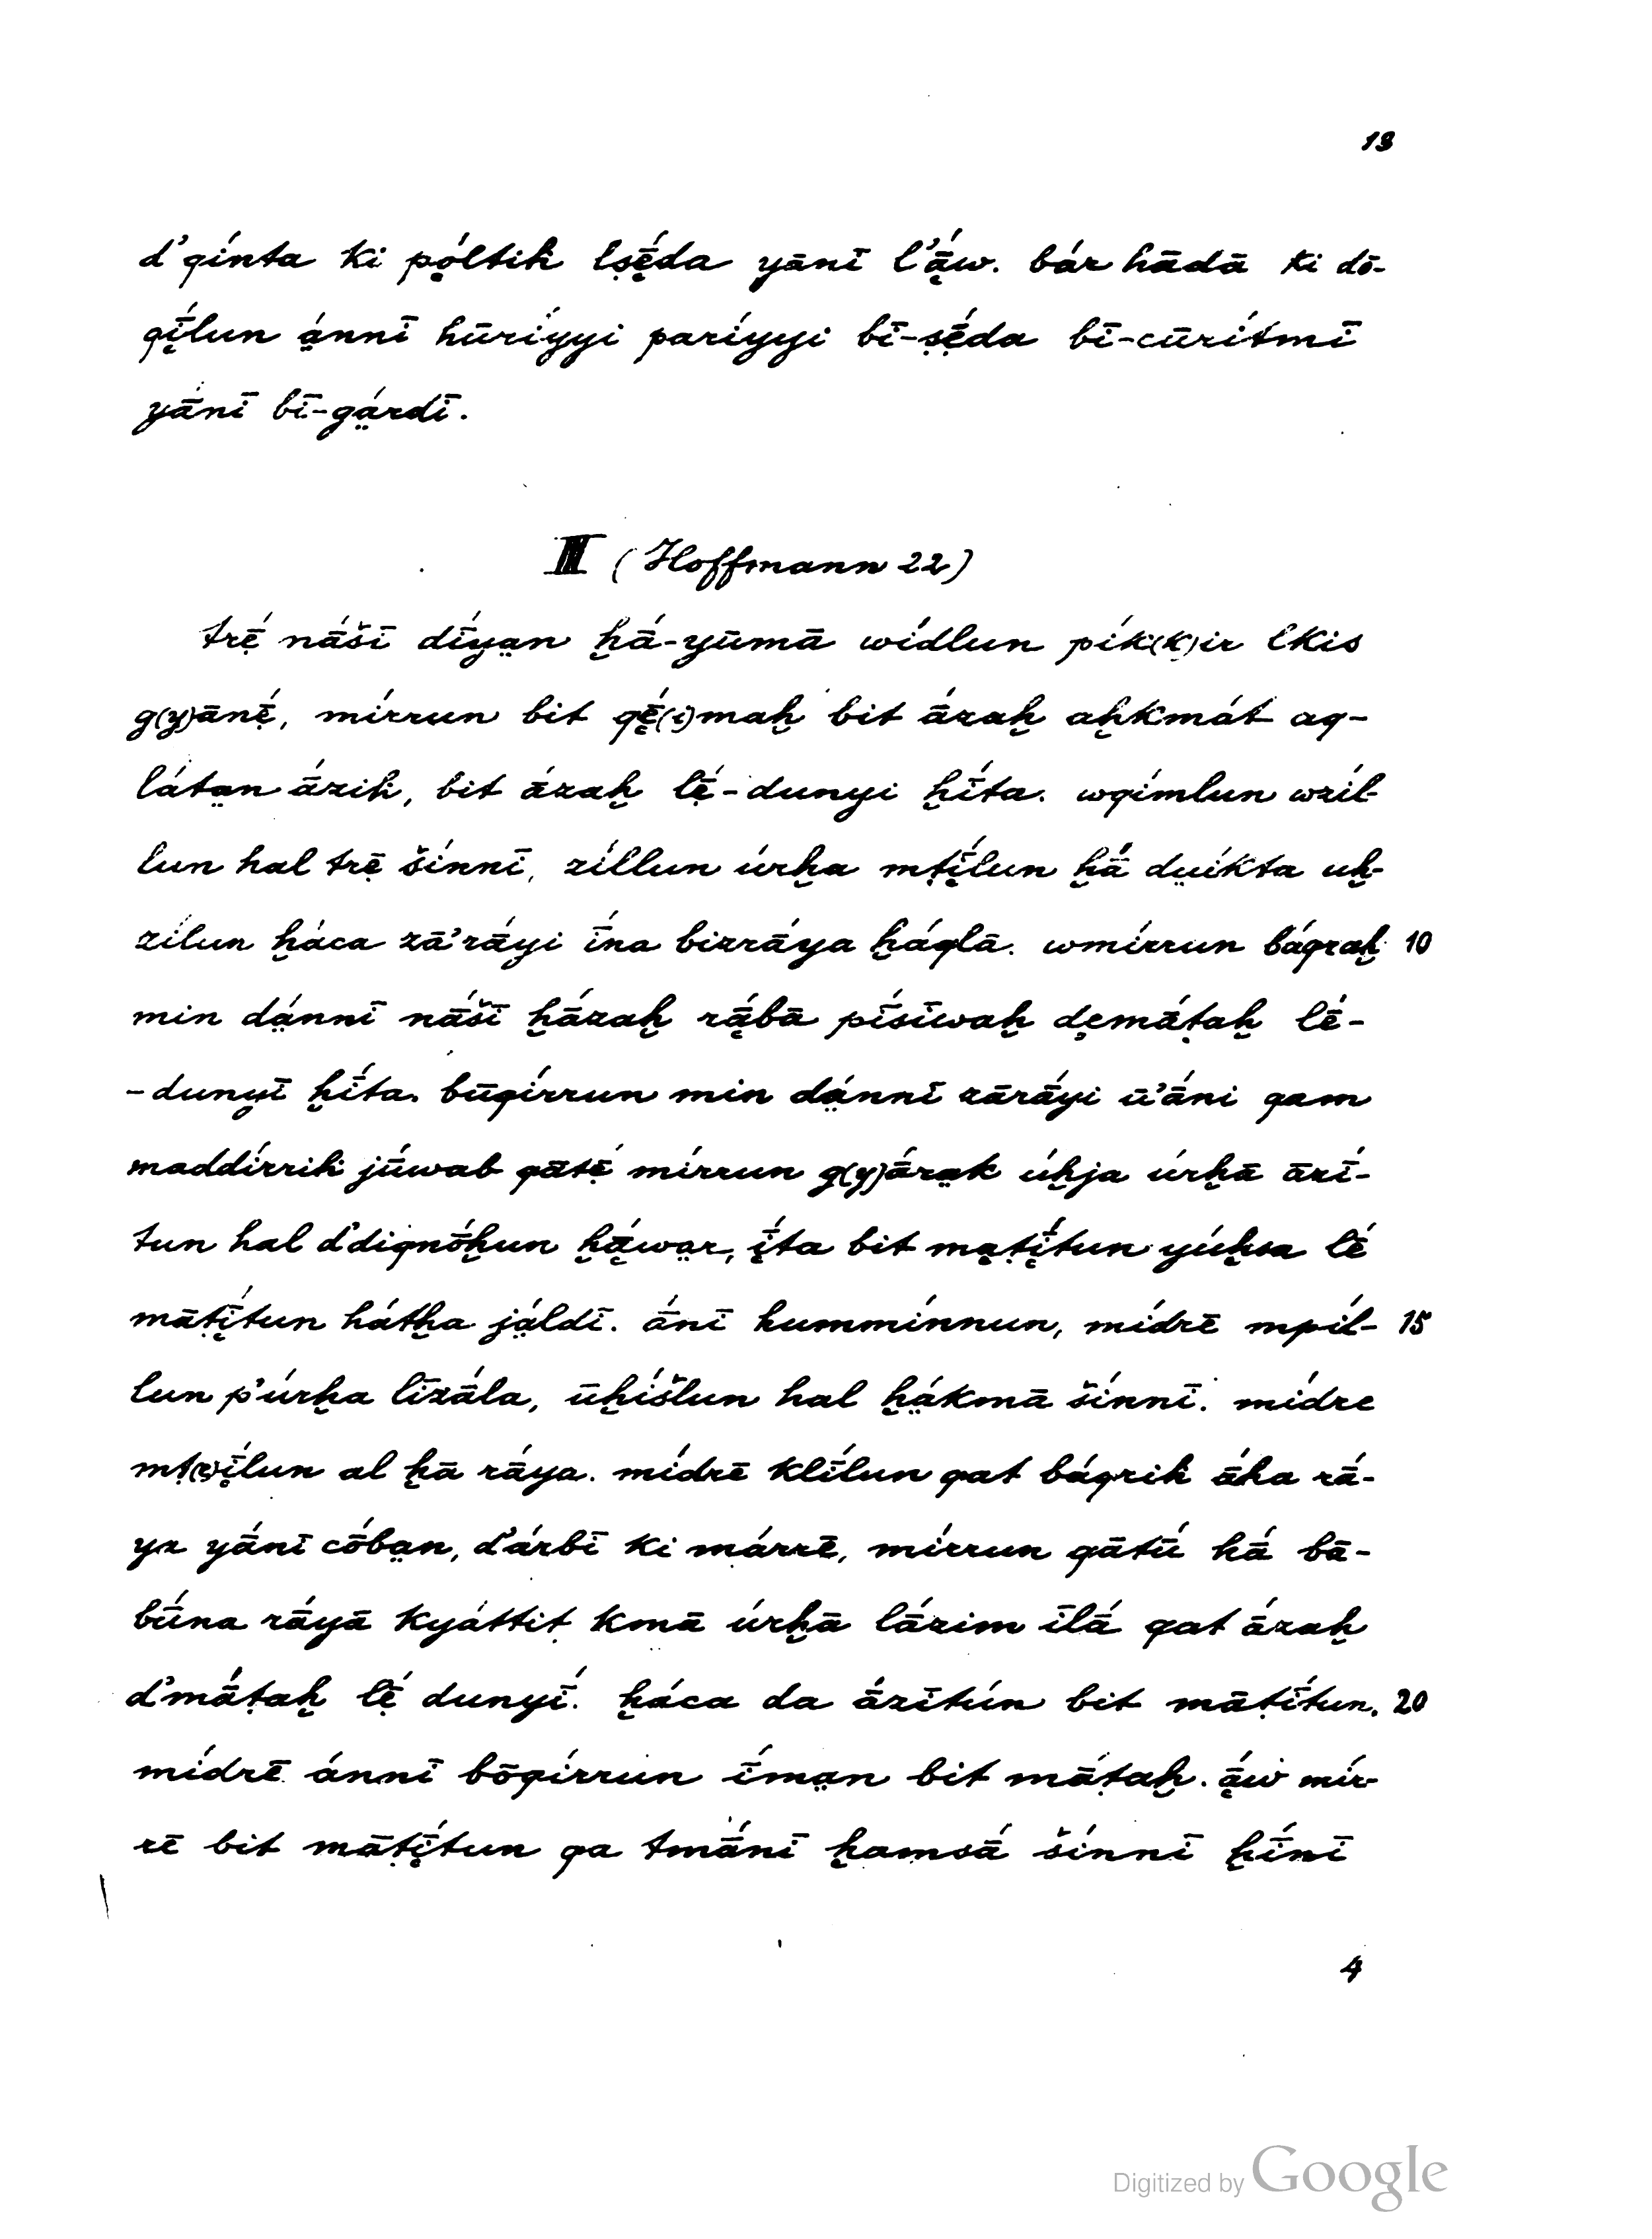 13
d'qínta ki pǫ́ltiḣ lṣę̄́da yānī l'ą̄́w. bár hādā ki dō-
qį̄́lun á̤nnī hūríyyi paríyyi bī-ṣę̄́da bī-cūrítmī
yā́nī bī-gá̤rdī.
III (Hoffmann 22)
trẹ̄́ nā́šī dī́ya̤n ḫā́-yūmā wídlun pík(k)ir lkis
g(y)ānẹ̄́, mírrun bit qę̄́(i)maḫ bit ā́zaḫ aḫkmát aq-
láta̤n ā́ziḣ, bit ā́zaḫ lẹ̄́-dunyi ḫī́ta. wqímlun wzíl-
lun hal trẹ̄ šínnī, zíllun úrḫa mṭį̄́lun ḫā̤́ dṳíkta uḫ-
zílun ḫáca zā'rā́yi ī́na bizrā́ya ḫáqlā. wmírrun báqraḫ 10
min dá̤nnī nā́šī ḫā́zaḫ rą̄́bā pī́šīwaḫ dęmā́ṭaḫ lē-
-dunyī ḫī́ta. būqírrun min dá̤nnī zārā́yi ū'ā́ni qam
maddírriḣ jū́wab qātẹ̄́ mírrun g(y)ā́ra̤k úḫja úrḫā āzī́-
tun hal d'diqnṓḫun ḫą̄́wa̤r, į̄́ta bit mąṭį̄́tun yúḫsa lē
māṭį̄́tun hátḫa já̤ldī. ā́nī hummínnun, mídrē mpíl- 15
lun p'úrḫa līzā́la, ūḫíšlun hal ḫá̤kmā šínnī. mídre
mṭ(y)į̄́lun al ḫā rā́ya. mídrē klī́lun qat báqriḣ ā́ha rā́-
ya yā́nī cṓba̤n, d'árbī ki márrē, mírrun qātū́ hā́ bā-
bū́na rā́yā kyáttiṭ kmā úrḫā lā́zim īlā́ qat ā́zaḫ
d'mā́ṭaḫ lẹ̄́ dunyī́. ḫáca da ā́zītún bit māṭī́tun. 20
mídrē ánnī bōqírrun ī́ma̤n bit mā́ṭaḫ. ą̄́w mír-
rē bit māṭį̄́tun qa tmā́nī ḫamsā́ šínnī ḫī́nī
4
Digitized by Google